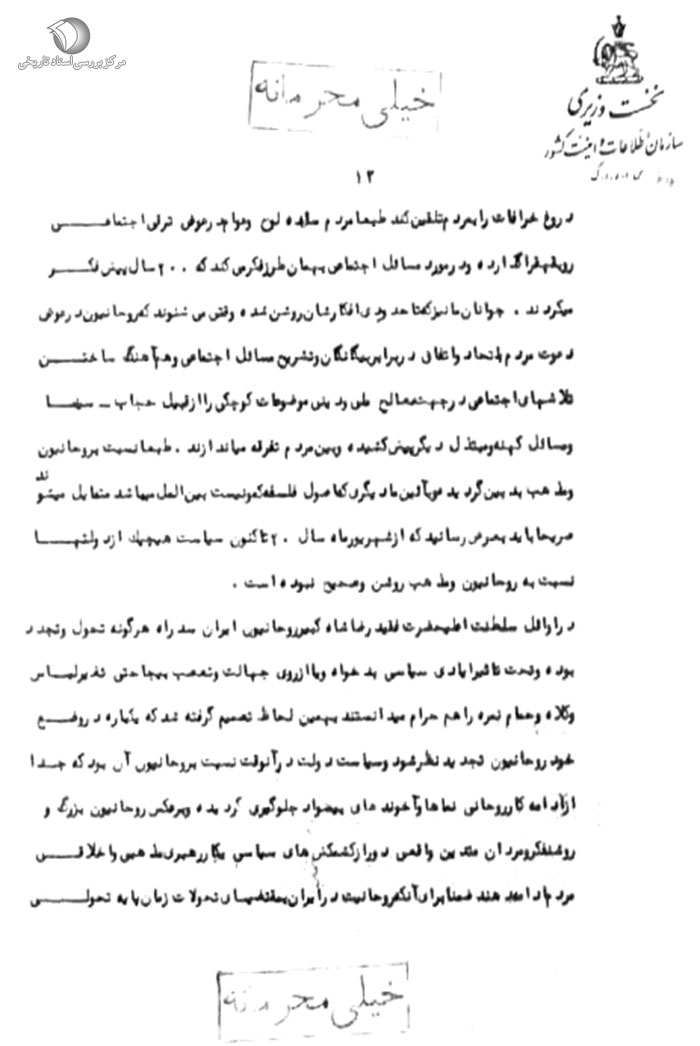 مرکز بررسی اسناد تاریخی
خیلی محرمانه
نخست وزیری
سازمان اطلاعات و امنیت کشور
۱۲
دروغ خرافات را بمردم تلقین کند طبعا مردم ساده لوح و عوام در عوض ترقی اجتماعی
رو بقهقرا گذارده و در مورد مسائل اجتماعی بهمان طرز فکر می کند که ۲۰۰ سال پیش فکر
میکردند . جوانان ما نیز که تا حدودی افکارشان روشن شده وقتی می شنوند که روحانیون در عوض
دعوت مردم باتحاد و اتفاق در برابر بیگانگان و تشریح مسائل اجتماعی و هم آهنگ ساختن
تلاشهای اجتماعی در جهت مصالح ملی و دینی موضوعات کوچکی را از قبیل حجاب ـ سینما
و مسائل کهنه و مبتذل دیگر پیش کشیده و بین مردم تفرقه میاندازند . طبعا نسبت بروحانیون
و مذهب بدبین گردیده و بآئین مادیگری که اصول فلسفه کمونیست بین الملل میباشد متمایل میشوند
صریحا باید بعرض رسانید که از شهریور ماه سال ۲۰ تا کنون سیاست هیچیک از دولتها
نسبت به روحانیون و مذهب روشن و صحیح نبوده است .
در اوائل سلطنت اعلیحضرت فقید رضا شاه کبیر روحانیون ایران سد راه هرگونه تحول و تجدد
بوده و تحت تاثیر ایادی سیاسی بدخواه و یا از روی جهالت و تعصب بیجا حتی تغییر لباس
و کلاه و حمام نمره را هم حرام میدانستند بهمین لحاظ تصمیم گرفته شد که یکباره در وضع
خود روحانیون تجدید نظر شود و سیاست دولت در آنوقت نسبت بروحانیون آن بود که جدا
از ادامه کار روحانی نماها و آخوند های بیسواد جلوگیری گردیده و برعکس روحانیون بزرگ و
روشنفکر و مردان متدین واقعی دور از کشمکش های سیاسی بکار رهبری مذهبی و اخلاقی
مردم ادامه دهند ضمنا برای آنکه روحانیت در ایران بمقتضیات تحولات زمان پایه تحولی
خیلی محرمانه